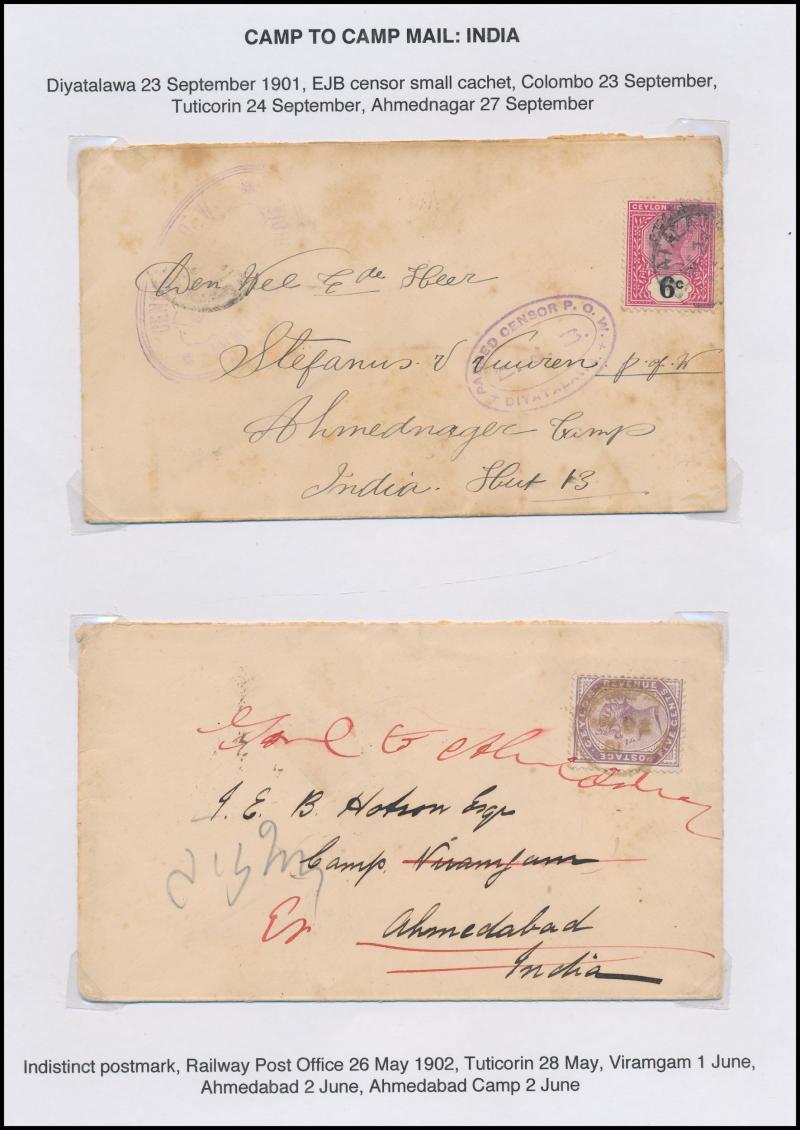 CAMP TO CAMP MAIL: INDIA
Diyatalawa 23 September 1901, EJB censor small cachet, Colombo 23 September,
Tuticorin 24 September, Ahmednagar 27 September
CEYLON
6c
Den Wel Ede Heer
PASSED CENSOR P. O. W.
DIYATALAWA
Stefanus v Vuuren p. of W
Ahmednager Camp
India. Hut 13
CEYLON POSTAGE
REVENUE
FIVE CENTS
to
J. E. B. Hotson Esqr
Camp Viramgam
Ahmedabad
India
Indistinct postmark, Railway Post Office 26 May 1902, Tuticorin 28 May, Viramgam 1 June,
Ahmedabad 2 June, Ahmedabad Camp 2 June